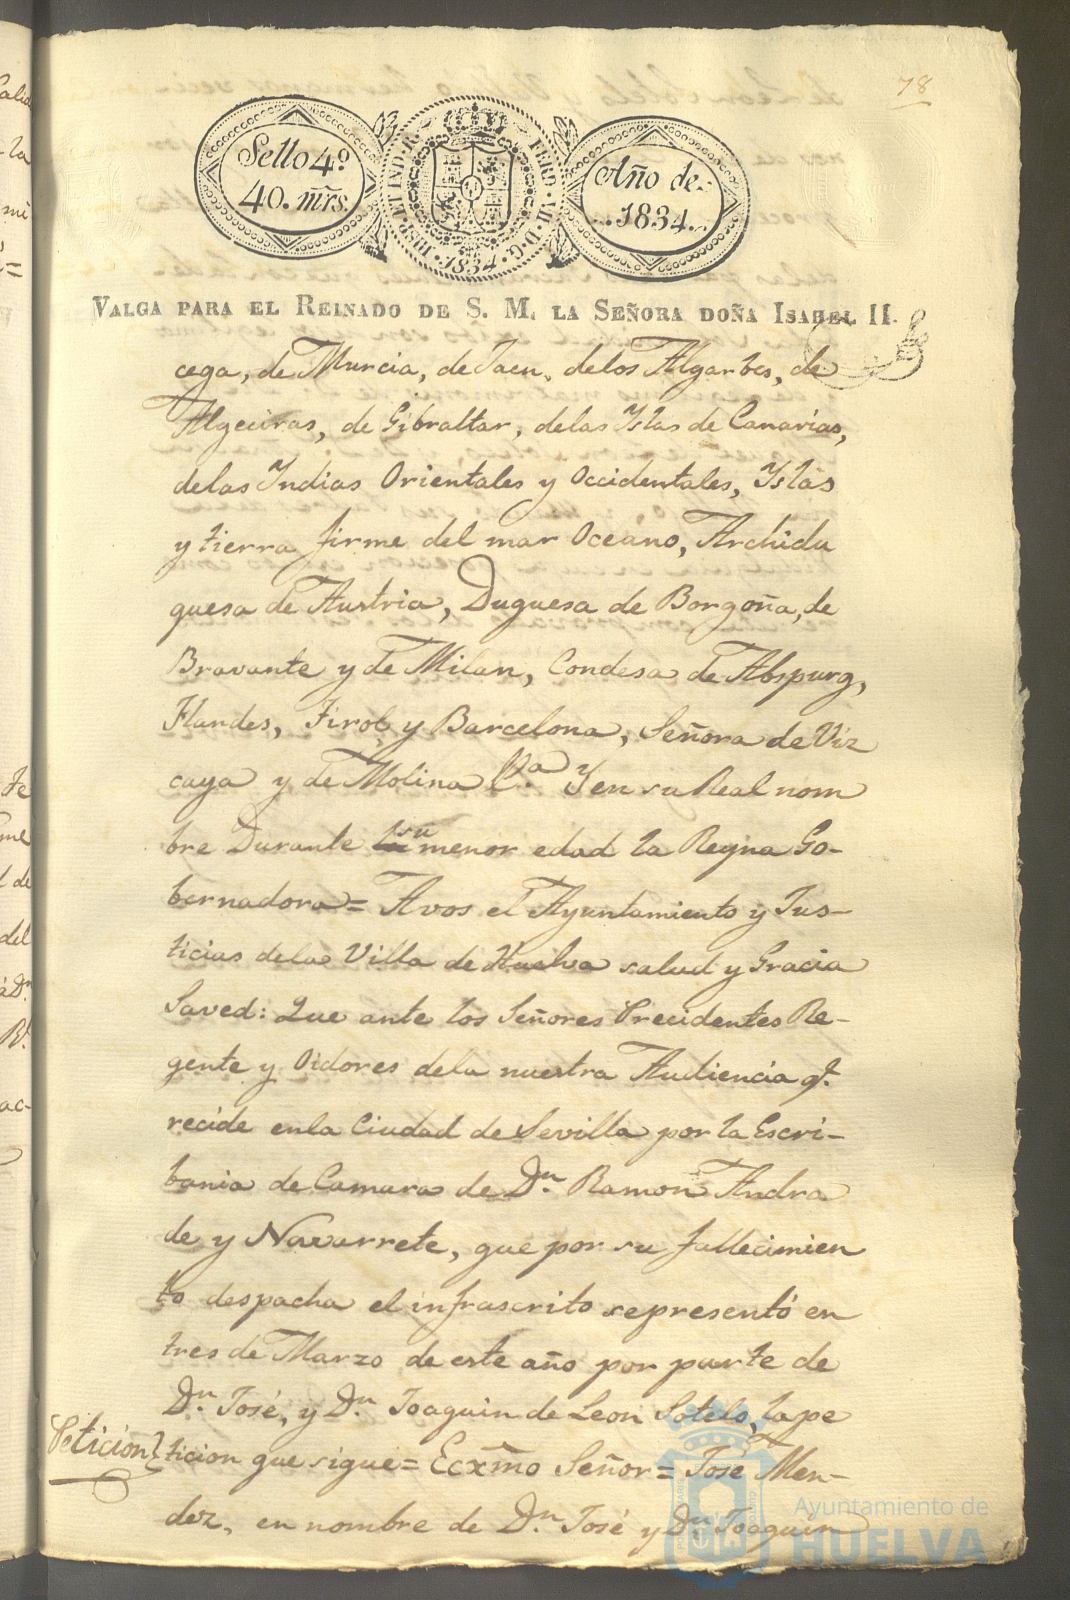 78
Sello 4º
40. mrs.
HISP. ET IND. R. FERD. VII. D. G. 1834.
Año de
1834.
VALGA PARA EL REINADO DE S. M. LA SEÑORA DOÑA ISABEL II.
cega, de Murcia, de Jaen, delos Algarbes, de
Algeciras, de Gibraltar, delas Yslas de Canarias,
delas Yndias Orientales y Occidentales, Yslas
y tierra firme del mar Oceano, Archidu
quesa de Austria, Duquesa de Borgoña, de
Bravante y de Milan, Condesa de Abspurg,
Flandes, Tirol y Barcelona, Señora de Viz
caya y de Molina &.a Y en su Real nom
bre Durante su menor edad la Reyna Go-
bernadora = Avos el Ayuntamiento y Jus-
ticias dela Villa de Huelva salud y Gracia
Saved: Que ante los Señores Precidentes Re-
gente y Oidores dela nuestra Audiencia q.e
recide enla Ciudad de Sevilla por la Escri-
bania de Camara de Dn. Ramon Andra
de y Navarrete, que por su fallecimien
to despacha el infrascrito sepresentó en
tres de Marzo de este año por parte de
Dn. José, y Dn. Joaquin de Leon Sotelo, lape
Peticion } ticion que sigue = Ecxmo Señor = José Men-
dez, en nombre de Dn. José y Dn. Joaquin
Ayuntamiento de
HUELVA